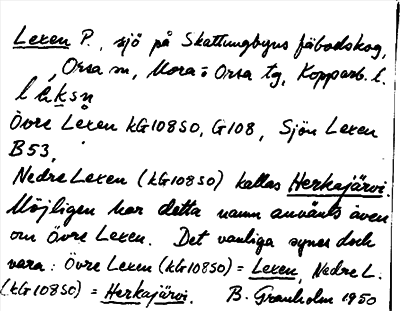 Lexen P., sjö på Skattungbyns fäbodskog,
Orsa sn, Mora o Orsa tg, Kopparb. l.
Övre Lexen kG10850, G108, Sjön Lexen
B53,
Nedre Lexen (kG10850) kallas Herkajärvi.
Möjligen har detta namn använts även
om Övre Lexen. Det vanliga synes dock
vara: Övre Lexen (kG10850) = Lexen, Nedre L.
(kG10850) = Herkajärvi. B. Granholm 1950